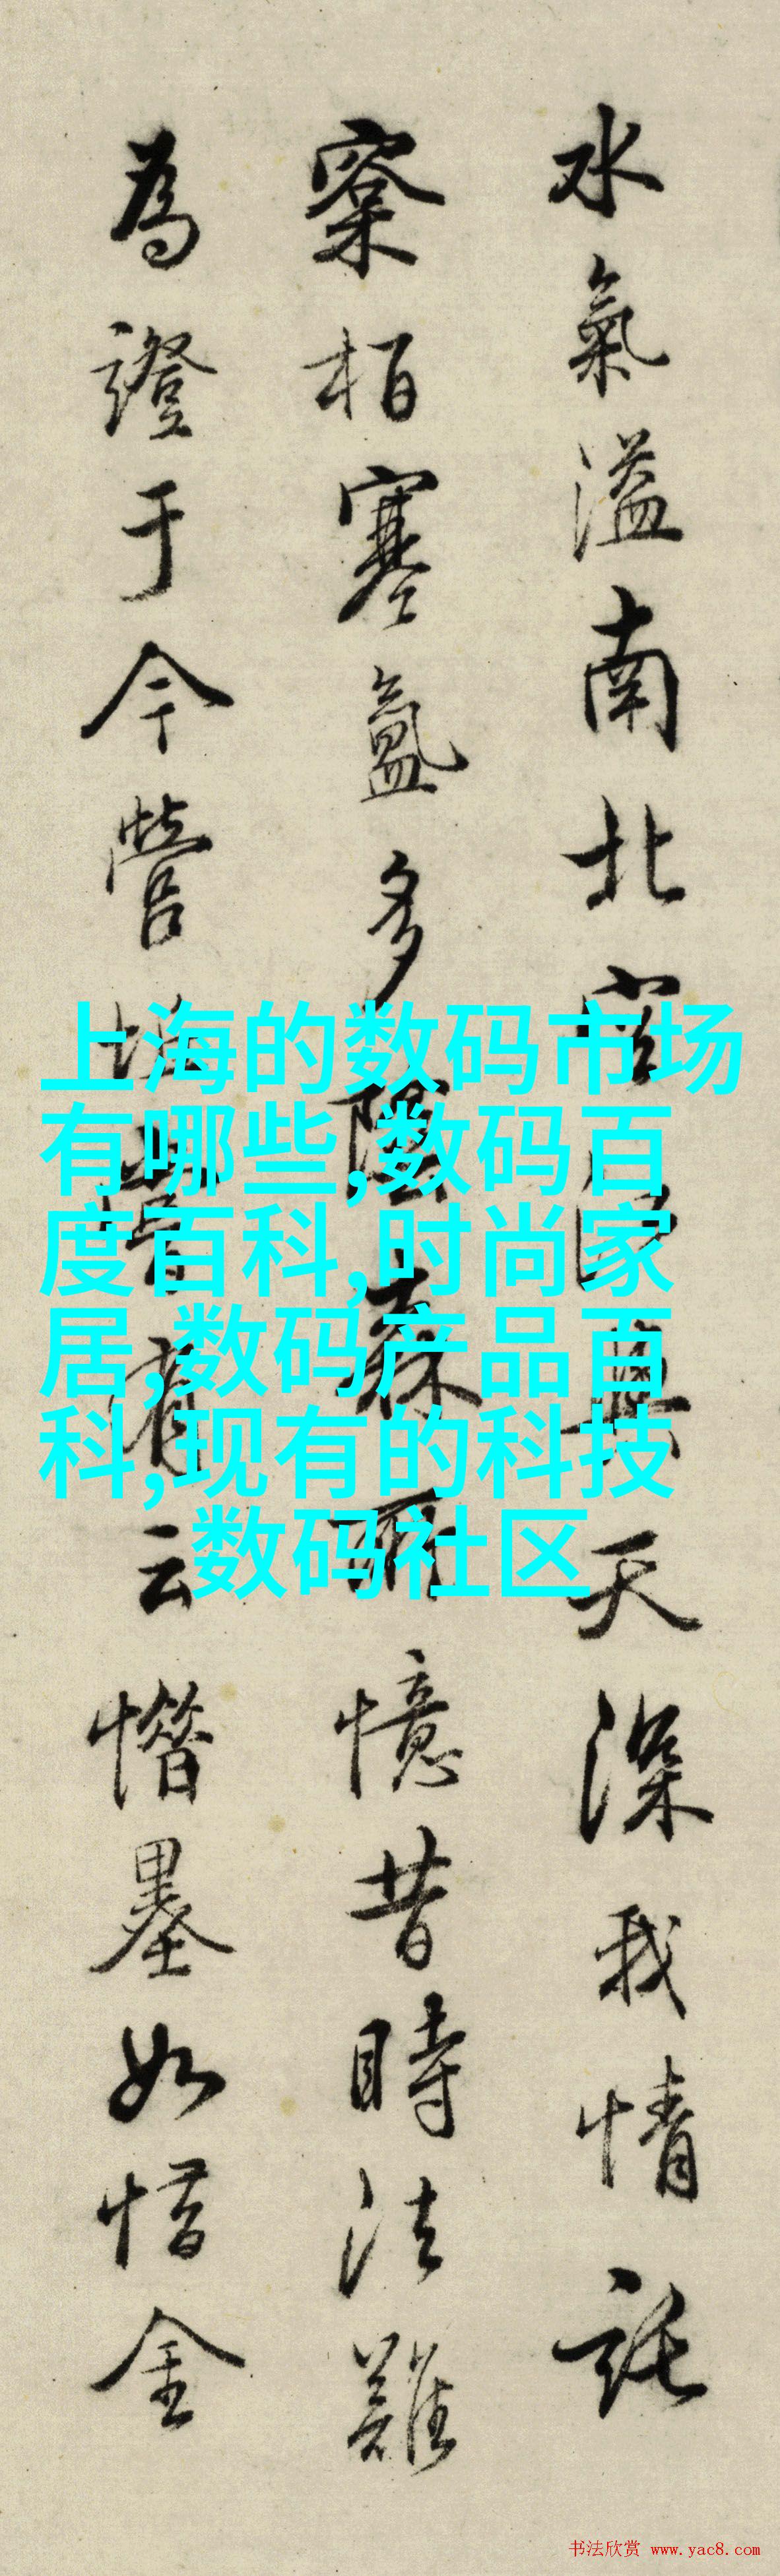 水氣溢南北
天深我情託
寀栢寒氳多陰森
憶昔時法難
為證于今營
有云惜墨如惜金
上海的数码市场
有哪些,数码百
度百科,时尚家
居,数码产品百
科,现有的科技
数码社区
书法欣赏 www.yac8.com